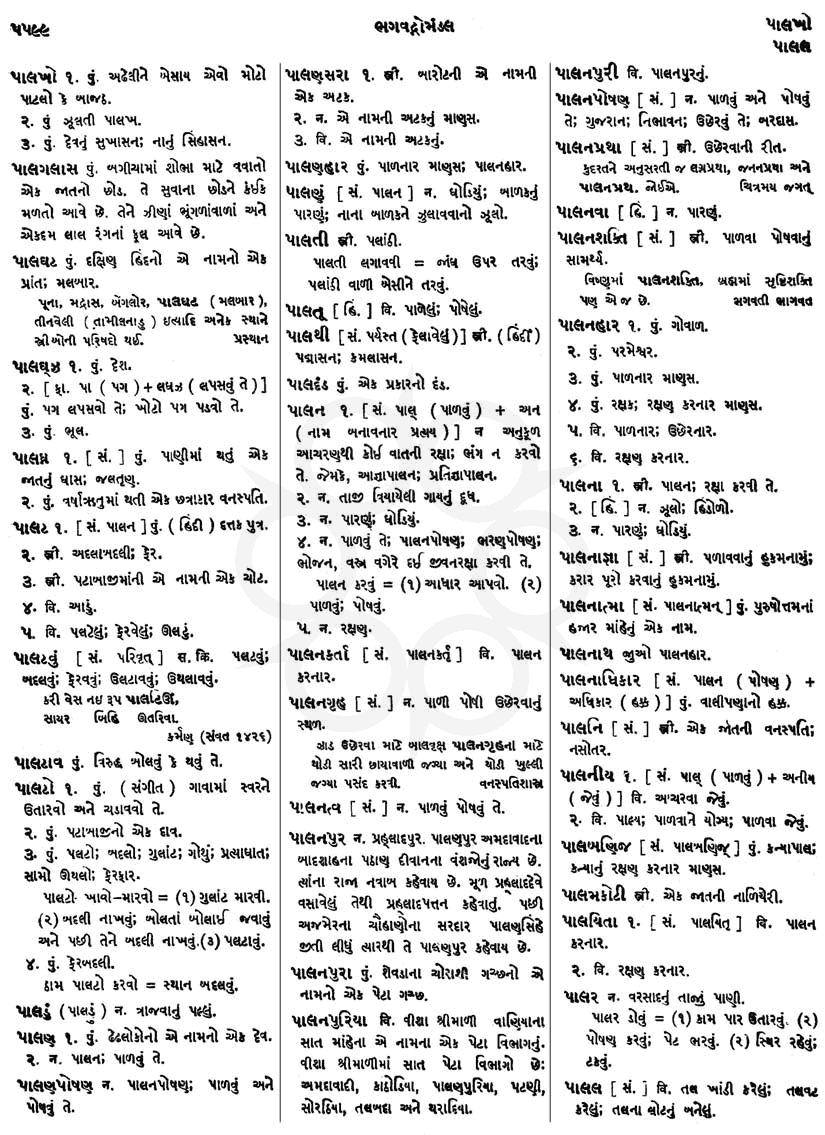 ૫૫૯૯
ભગવદ્ગોમંડલ
પાલખો
પાલલ
પાલખો ૧. પું. અઢેલીને બેસાય એવો મોટો
પાટલો કે બાજઠ.
૨. પું ઝૂલતી પાલખ.
૩. પું. દેવનું સુખાસન; નાનું સિંહાસન.
પાલગલાસ પું. બગીચામાં શોભા માટે વવાતો
એક જાતનો છોડ. તે સુવાના છોડને કંઈક
મળતો આવે છે. તેને ઝીણાં ભૂંગળાંવાળાં અને
એકદમ લાલ રંગનાં ફૂલ આવે છે.
પાલઘટ પું. દક્ષિણ હિંદનો એ નામનો એક
પ્રાંત; મલબાર.
પૂના, મદ્રાસ, બેંગલોર, પાલઘટ (મલબાર),
તીનવેલી (તામીલનાડુ) ઇત્યાદિ અનેક સ્થાને
સ્ત્રીઓની પરિષદો થઈ. પ્રસ્થાન
પાલઘ્ઝ ૧. પું. દેશ.
૨. [ ફા. પા ( પગ ) + લઘઝ ( લપસવું તે ) ]
પું. પગ લપસવો તે; ખોટો પગ પડવો તે.
૩. પું. ભૂલ.
પાલઘ્ન ૧. [ સં. ] પું. પાણીમાં થતું એક
જાતનું ઘાસ; જલતૃણ.
૨. પું. વર્ષાઋતુમાં થતી એક છત્રાકાર વનસ્પતિ.
પાલટ ૧. [ સં. પાલન ] પું. ( હિંદી ) દત્તક પુત્ર.
૨. સ્ત્રી. અદલાબદલી; ફેર.
૩. સ્ત્રી. પટાબાજીમાંની એ નામની એક ચોટ.
૪. વિ. આડું.
૫. વિ. પલટેલું; ફેરવેલું; ઊલટું.
પાલટવું [ સં. પરિવૃત્ ] સ. ક્રિ. પલટવું;
બદલવું; ફેરવવું; ઉલટાવવું; ઉથલાવવું.
કરી વેસ નઇ રૂપ પાલટિઊં,
સાયર બિહિ ઊતરિવા.
કર્મણ (સંવત ૧૪૨૬)
પાલટાવ પું. વિરુદ્ધ બોલવું કે થવું તે.
પાલટો ૧. પું. ( સંગીત ) ગાવામાં સ્વરને
ઉતારવો અને ચડાવવો તે.
૨. પું. પટાબાજીનો એક દાવ.
૩. પું. પલટો; બદલો; ગુલાંટ; ગોથું; પ્રત્યાઘાત;
સામો ઊથલો; ફેરફાર.
પાલટો ખાવો–મારવો = (૧) ગુલાંટ મારવી.
(૨) બદલી નાખવું; બોલતાં બોલાઈ જવાવું
અને પછી તેને બદલી નાખવું.(૩) પલટાવું.
૪. પું. ફેરબદલી.
ઠામ પાલટો કરવો = સ્થાન બદલવું.
પાલડું (પાલડું) ન. ત્રાજવાનું પલ્લું.
પાલણ ૧. પું. ઢેઢલોકોનો એ નામનો એક દેવ.
૨. ન. પાલન; પાળવું તે.
પાલણપોષણ ન. પાલનપોષણ; પાળવું અને
પોષવું તે.
પાલણસરા ૧. સ્ત્રી. બારોટની એ નામની
એક અટક.
૨. ન. એ નામની અટકનું માણસ.
૩. વિ. એ નામની અટકનું.
પાલણહાર પું. પાળનાર માણસ; પાલનહાર.
પાલણું [ સં. પાલન ] ન. ઘોડિયું; બાળકનું
પારણું; નાના બાળકને ઝુલાવવાનો ઝૂલો.
પાલતી સ્ત્રી. પલાંઠી.
પાલતી લગાવવી = જાંઘ ઉપર તરવું;
પલાંઠી વાળી બેસીને તરવું.
પાલતૂ [ હિં. ] વિ. પાળેલું; પોષેલું.
પાલથી [ સં. પર્યસ્ત ( ફેલાવેલું ) ] સ્ત્રી. ( હિંદી )
પદ્માસન; કમલાસન.
પાલદંડ પું. એક પ્રકારનો દંડ.
પાલન ૧. [ સં. પાલ્ ( પાળવું ) + અન
( નામ બનાવનાર પ્રત્યય ) ] ન અનુકૂળ
આચરણથી કોઈ વાતની રક્ષા; ભંગ ન કરવો
તે. જેમકે, આજ્ઞાપાલન; પ્રતિજ્ઞાપાલન.
૨. ન. તાજી વિયાયેલી ગાયનું દૂધ.
૩. ન. પારણું; ઘોડિયું.
૪. ન. પાળવું તે; પાલનપોષણ; ભરણપોષણ;
ભોજન, વસ્ત્ર વગેરે દઈ જીવનરક્ષા કરવી તે.
પાલન કરવું = (૧) આધાર આપવો. (૨)
પાળવું; પોષવું.
૫. ન. રક્ષણ.
પાલનકર્તા [ સં. પાલનકર્તૃ ] વિ. પાલન
કરનાર.
પાલનગૃહ [ સં. ] ન. પાળી પોષી ઉછેરવાનું
સ્થળ.
ઝાડ ઉછેરવા માટે બાલવૃક્ષ પાલનગૃહના માટે
થોડી સારી છાયાવાળી જગ્યા અને થોડી ખુલ્લી
જગ્યા પસંદ કરવી. વનસ્પતિશાસ્ત્ર
પાલનત્વ [ સં. ] ન. પાળવું પોષવું તે.
પાલનપુર ન. પ્રહ્લાદપુર. પાલણપુર અમદાવાદના
બાદશાહના પઠાણ દીવાનના વંશજોનું રાજ્ય છે.
ત્યાંના રાજા નવાબ કહેવાય છે. મૂળ પ્રહ્લાદદેવે
વસાવેલું તેથી પ્રહ્લાદપત્તન કહેવાતું. પછી
અજમેરના ચૌહાણોના સરદાર પાલણસિંહે
જીતી લીધું ત્યારથી તે પાલણપુર કહેવાય છે.
પાલનપુરા પું. શેવડાના ચોરાશી ગચ્છનો એ
નામનો એક પેટા ગચ્છ.
પાલનપુરિયા વિ. વીશા શ્રીમાળી વાણિયાના
સાત માંહેના એ નામના એક પેટા વિભાગનું.
વીશા શ્રીમાળીમાં સાત પેટા વિભાગો છેઃ
અમદાવાદી, કાઠોડિયા, પાલણપુરિયા, પટણી,
સોરઠિયા, તલબદા અને થરાદિવા.
પાલનપુરી વિ. પાલનપુરનું.
પાલનપોષણ [ સં. ] ન. પાળવું અને પોષવું
તે; ગુજરાન; નિભાવન; ઉછેરવું તે; બરદાસ.
પાલનપ્રથા [ સં. ] સ્ત્રી. ઉછેરવાની રીત.
કુદરતને અનુસરતી જ લગ્નપ્રથા, જનનપ્રથા અને
પાલનપ્રથા જોઈએ. ચિત્રમય જગત્
પાલનવા [ હિં. ] ન. પારણું.
પાલનશક્તિ [ સં. ] સ્ત્રી. પાળવા પોષવાનું
સામર્થ્ય.
વિષ્ણુમાં પાલનશક્તિ, બ્રહ્મામાં સૃષ્ટિશક્તિ
પણ એ જ છે. ભગવતી ભાગવત
પાલનહાર ૧. પું. ગોવાળ.
૨. પું. પરમેશ્વર.
૩. પું. પાળનાર માણસ.
૪. પું. રક્ષક; રક્ષણ કરનાર માણસ.
૫. વિ. પાળનાર; ઉછેરનાર.
૬. વિ. રક્ષણ કરનાર.
પાલના ૧. સ્ત્રી. પાલન; રક્ષા કરવી તે.
૨. [ હિં. ] ન. ઝૂલો; હિંડોળો.
૩. ન. પારણું; ઘોડિયું.
પાલનાજ્ઞા [ સં. ] સ્ત્રી. પળાવવાનું હુકમનામું;
કરાર પૂરો કરવાનું હુકમનામું.
પાલનાત્મા [ સં. પાલનાત્મન્ ] પું. પુરુષોત્તમનાં
હજાર માંહેનું એક નામ.
પાલનાથ જુઓ પાલનહાર.
પાલનાધિકાર [ સં. પાલન ( પોષણ ) +
અધિકાર ( હક્ક ) ] પું. વાલીપણાનો હક્ક.
પાલનિ [ સં. ] સ્ત્રી. એક જાતની વનસ્પતિ;
નસોતર.
પાલનીય ૧. [ સં. પાલ્ ( પાળવું ) + અનીય
( જેવું ) ] વિ. આચરવા જેવું.
૨. વિ. પાલ્ય; પાળવાને યોગ્ય; પાળવા જેવું.
પાલબણિજ [ સં. પાલબણિજ્ ] પું. કન્યાપાલ;
કન્યાનું રક્ષણ કરનાર માણસ.
પાલમકોટી સ્ત્રી. એક જાતની નાળિયેરી.
પાલયિતા ૧. [ સં. પાલયિતૃ ] વિ. પાલન
કરનાર.
૨. વિ. રક્ષણ કરનાર.
પાલર ન. વરસાદનું તાજું પાણી.
પાલર ઢોલું = (૧) કામ પાર ઉતારવું. (૨)
પોષણ કરવું; પેટ ભરવું. (૨) સ્થિર રહેવું;
ટકવું.
પાલલ [ સં. ] વિ. તલ ખાંડી કરેલું; તલવટ
કરેલું; તલના લોટનું બનેલું.